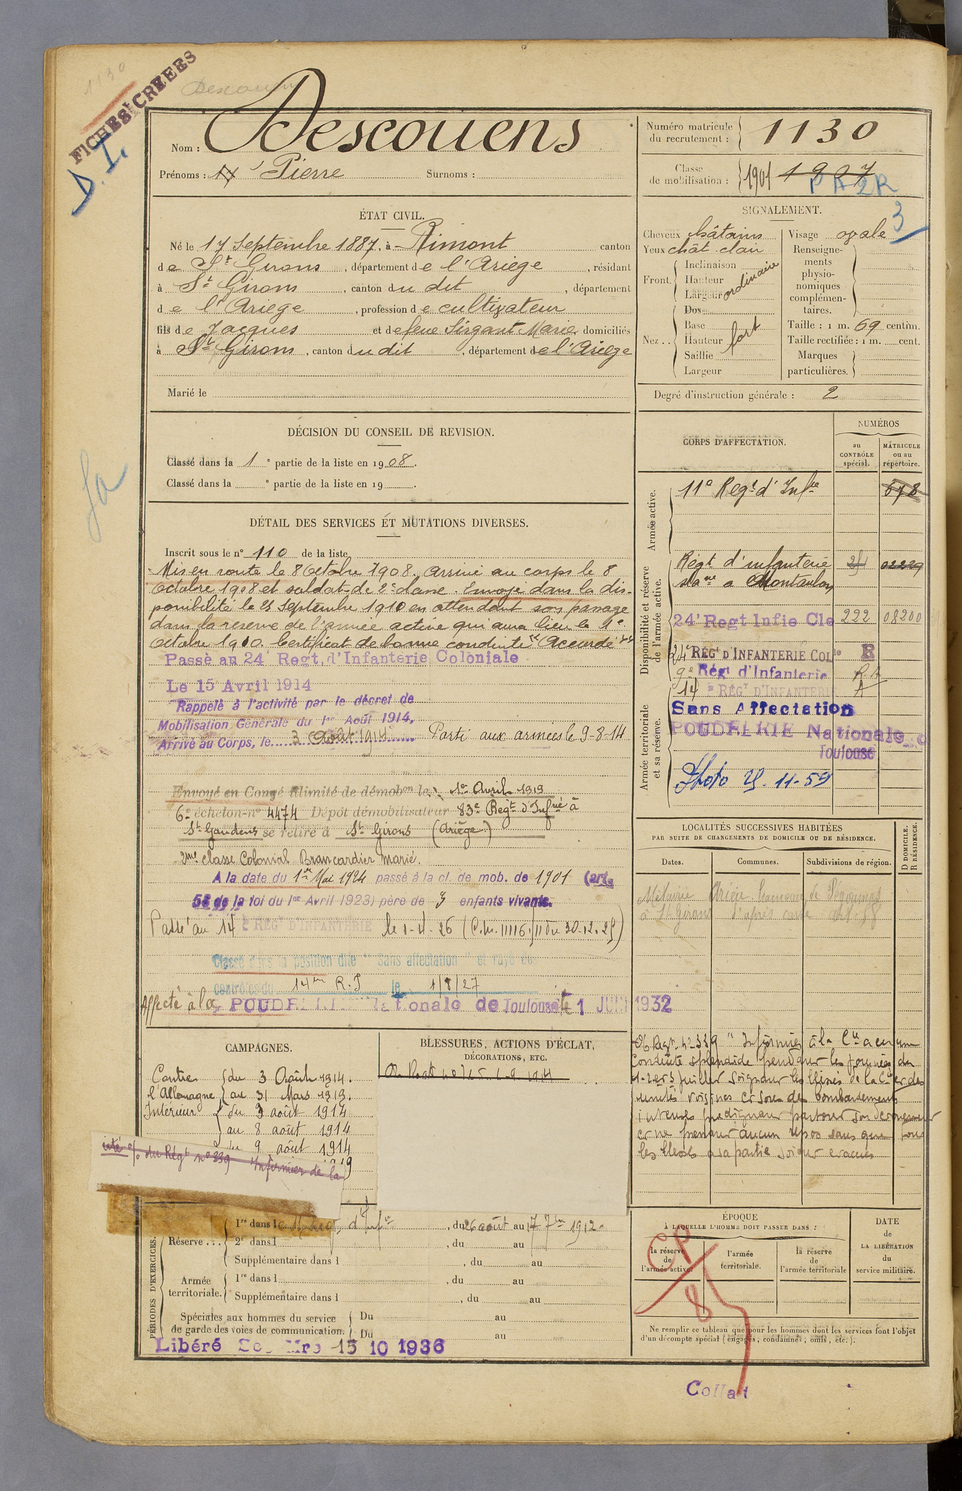 1130
FICHES CRÉÉES
D. I.
Nom : Descouens
Prénoms : Pierre Surnoms :
Numéro matricule du recrutement : 1130
Classe de mobilisation : 1901 1907
P R 2 R
3
ÉTAT CIVIL.
Né le 17 Septembre 1887, à Rimont canton
de St Girons, département de l'Ariège, résidant
à St Girons, canton du dit, département
de l'Ariège, profession de cultivateur
fils de Jacques et de feue Sirgant Marie, domiciliés
à St Girons, canton du dit, département de l'Ariège
Marié le
SIGNALEMENT.
Cheveux châtains Visage ovale
Yeux chât. clair Renseignements physionomiques complémentaires.
Front. Inclinaison
Hauteur ordinaire
Largeur
Nez. Dos
Base
Hauteur fort
Saillie
Largeur
Taille : 1 m. 69 centim.
Taille rectifiée : 1 m. cent.
Marques particulières.
Degré d'instruction générale : 2
DÉCISION DU CONSEIL DE REVISION.
Classé dans la 1e partie de la liste en 1908.
Classé dans la e partie de la liste en 19
DÉTAIL DES SERVICES ET MUTATIONS DIVERSES.
Inscrit sous le n° 110 de la liste
Mis en route le 8 Octobre 1908. Arrivé au corps le 8
octobre 1908 et soldat de 2e classe. Envoyé dans la dis-
ponibilité le 25 Septembre 1910 en attendant son passage
dans la réserve de l'armée active qui aura lieu le 1er
octobre 1910. Certificat de bonne conduite Accordé
Passé au 24 Regt d'Infanterie Coloniale
Le 15 Avril 1914
Rappelé à l'activité par le décret de
Mobilisation Générale du 1er Août 1914.
Arrivé au Corps, le 3 Août 1914 Parti aux armées le 9-8-14
Envoyé en Congé illimité de démobon le 1er Avril 1919
6e échelon n° 4474 Dépôt démobilisateur 83e Regt d'Infrie à
St Gaudens se retire à St Girons (Ariège)
2me classe Colonial Brancardier Marié.
A la date du 1er Mai 1924 passé à la cl. de mob. de 1901 (art.
58 de la loi du 1er Avril 1923) père de 3 enfants vivants.
Passé au 14e RÉGt D'INFANTERIE le 1-4-26 (C.M. 11116/11 du 30-12-25)
Classé dans la position dite "Sans affectation" et rayé des
contrôles du 14me R.I le 1/8/27
Affecté à la POUDRERIE Nationale de Toulouse le 1 JUIN 1932
CORPS D'AFFECTATION.
NUMÉROS
au CONTRÔLE spécial.
MATRICULE ou au répertoire.
Armée active.
11e Regt d'Infie 678
Disponibilité et réserve de l'armée active.
Régt d'infanterie
stanné à Montauban 02229
24e Regt Infie Cle 222 08200
24e RÉGt D'INFANTERIE COLle R
9e Régt d'Infanterie R.A
14e RÉGt D'INFANTERIE A
Armée territoriale et sa réserve.
Sans Affectation
POUDRERIE Nationale
Toulouse
Photo 25-11-59
LOCALITÉS SUCCESSIVES HABITÉES
PAR SUITE DE CHANGEMENTS DE DOMICILE OU DE RÉSIDENCE.
Dates. Communes. Subdivisions de région. D DOMICILE. R RÉSIDENCE.
à St Girons
CAMPAGNES.
Contre l'Allemagne du 3 Août 1914.
au 31 Mars 1919.
Intérieur du 3 août 1914
au 8 août 1914
du 9 août 1914
BLESSURES, ACTIONS D'ÉCLAT,
DÉCORATIONS, ETC.
cité o/o du Régt n° 339 Infirmier de la
o/o Regt n° 339 " Infirmier à la Cie a eu une
conduite splendide pendant les journées du
1-2 et 3 juillet Soignant les blessés de la Cie et des
unités voisines et sous des bombardements
intenses prodiguant partout son dévouement
et ne prenant aucun repos sans que tous
les blessés de sa partie soient évacués
PÉRIODES D'EXERCICES.
Réserve. 1re dans le , du 26 août au 17 7bre 1912.
2e dans l , du au
Supplémentaire dans l , du au
Armée territoriale. 1re dans l , du au
Supplémentaire dans l , du au
Spéciales aux hommes du service
de garde des voies de communication. Du au
Du au
Libéré 15 10 1936
ÉPOQUE
À LAQUELLE L'HOMME DOIT PASSER DANS :
la réserve de l'armée active
l'armée territoriale.
la réserve de l'armée territoriale
DATE de LA LIBÉRATION du service militaire.
Ne remplir ce tableau que pour les hommes dont les services font l'objet
d'un décompte spécial (engagés, condamnés, omis, etc.).